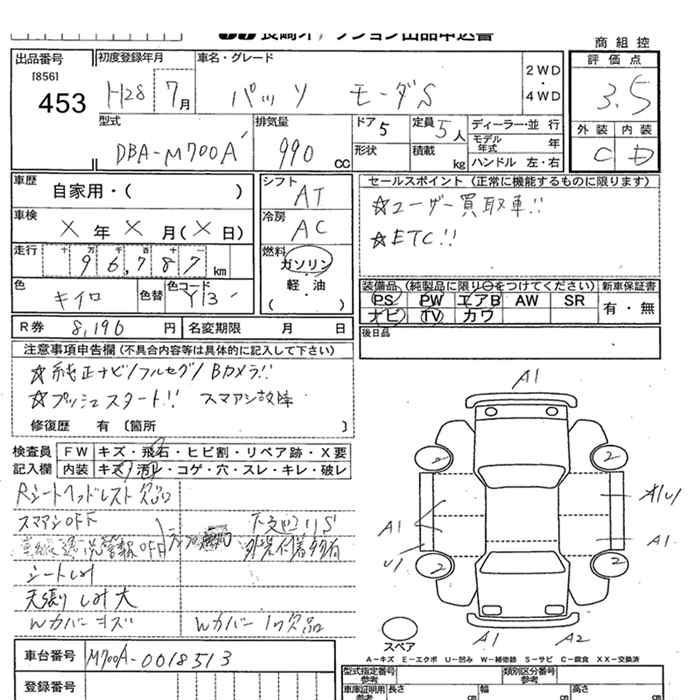 出品申込書
商組控
出品番号 初度登録年月 車名・グレード 2WD・4WD 評価点
[856]
453 H28 7月 パッソ モーダS 3.5
型式 排気量 ドア 5 定員 5人 ディーラー・並行
DBA-M700A 990 CC 形状 積載 kg モデル年式 年
ハンドル 左・右
外装 内装
C D
車歴 自家用・( )
シフト AT
セールスポイント (正常に機能するものに限ります)
☆ユーザー買取車!!
☆ETC!!
車検 X年X月(X日)
冷房 AC
走行 十万千百十一
96,787 km
燃料 ガソリン・軽・油
( )
色 キイロ 色替 色コード Y13
装備品 (純製品に限り○をつけてください) 新車保証書
PS PW エアB AW SR 有・無
ナビ TV カワ
R券 8,190円 名変期限 月 日
後日品
注意事項申告欄(不具合内容等は具体的に記入して下さい)
☆純正ナビ/フルセグ/Bカメラ!!
☆プッシュスタート!! スマアシ故障
修復歴 有〔箇所 〕
検査員記入欄 FW キズ・飛石・ヒビ割・リペア跡・X要
内装 キズ・汚れ・コゲ・穴・スレ・キレ・破レ
Rシートヘッドレスト欠品
スマアシOFF
シートしみ
天張りしみ大
Wカバーキズ Wカバー1ヶ欠品
A1
2 2
A1 A1
U1
2 2
A1 A2
スペア
A-キズ E-エクボ U-凹み W-補修跡 S-サビ C-腐食 XX-交換済
車台番号 M700A-0018513
登録番号
型式指定番号 類別区分番号
車庫証明用参考 長さ 幅 高さ